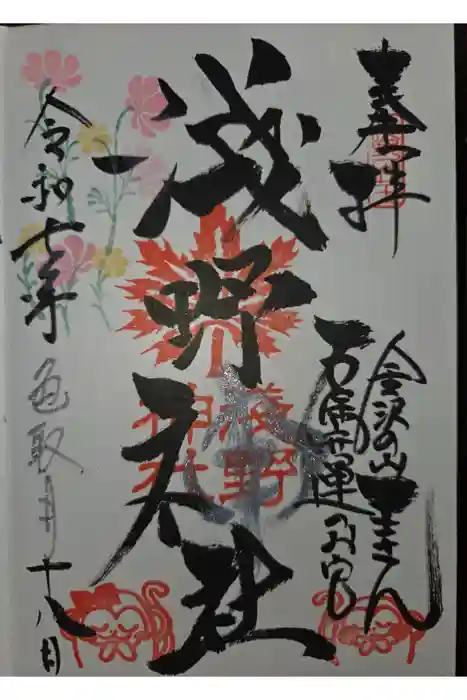 奉拝
金沢の山王さん
開運のお宮
浅野神社
浅野
神社
令和七年
色取月
十八日